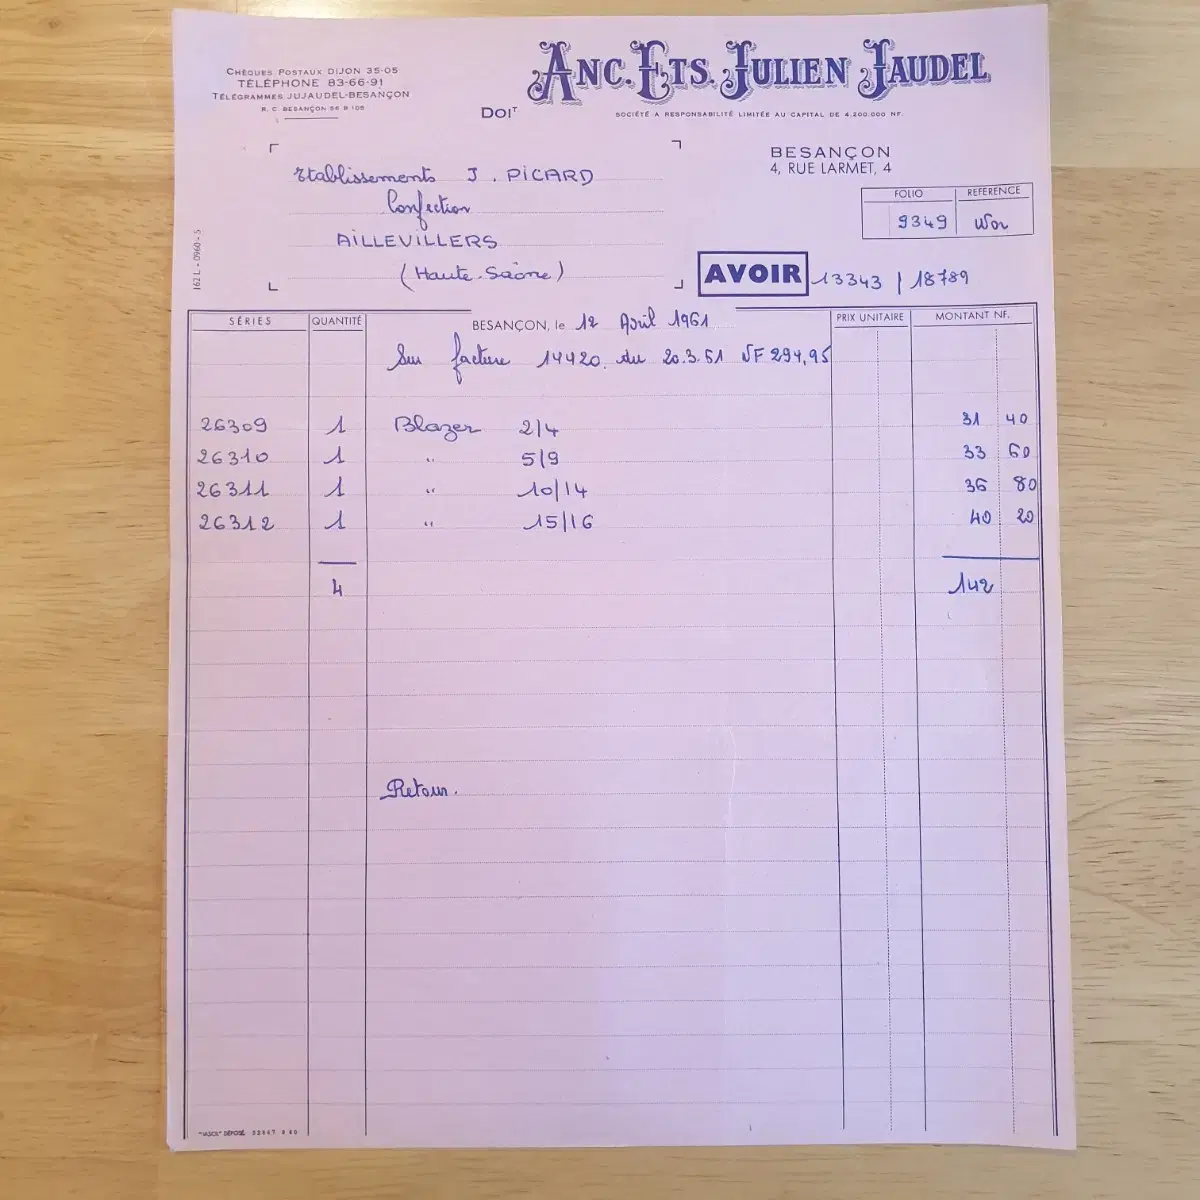 Chèques Postaux Dijon 35-05
Téléphone 83-66-91
Télégrammes Jujaudel-Besançon
R. C. Besançon 56 B 105
Anc. Ets. Julien Jaudel
Société a Responsabilité Limitée au Capital de 4.200.000 NF.
Doit
BESANÇON
4, RUE LARMET, 4
Etablissements J. PICARD
Confection
AILLEVILLERS
(Haute-Saône)
FOLIO REFERENCE
9349
162 L - 0960 - 5
AVOIR 13343 / 18789
SÉRIES QUANTITÉ BESANÇON, le 12 Avril 1961 PRIX UNITAIRE MONTANT NF.
Sur facture 14420. du 20.3.61 NF 294,95
26309 1 Blazer 2/4 31 40
26310 1 " 5/9 33 60
26311 1 " 10/14 36 80
26312 1 " 15/16 40 20
4 142
Retour.
DÉPOSÉ